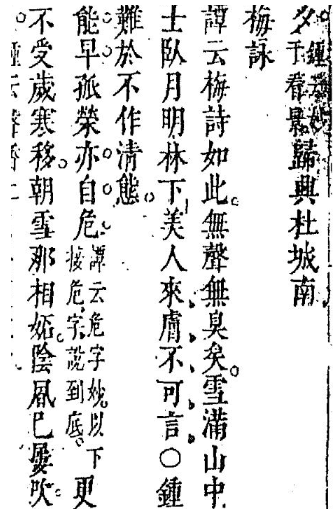 歸典杜城南
梅詠
譚云梅詩如此無聲無臭矣雪滿山中
士臥月明林下美人來膚不可言○鍾
難於不作清態
能早孤榮亦自危譚云危字妙以下接危字說到底更
不受歲寒移朝雪那相妬陰風已屢吹